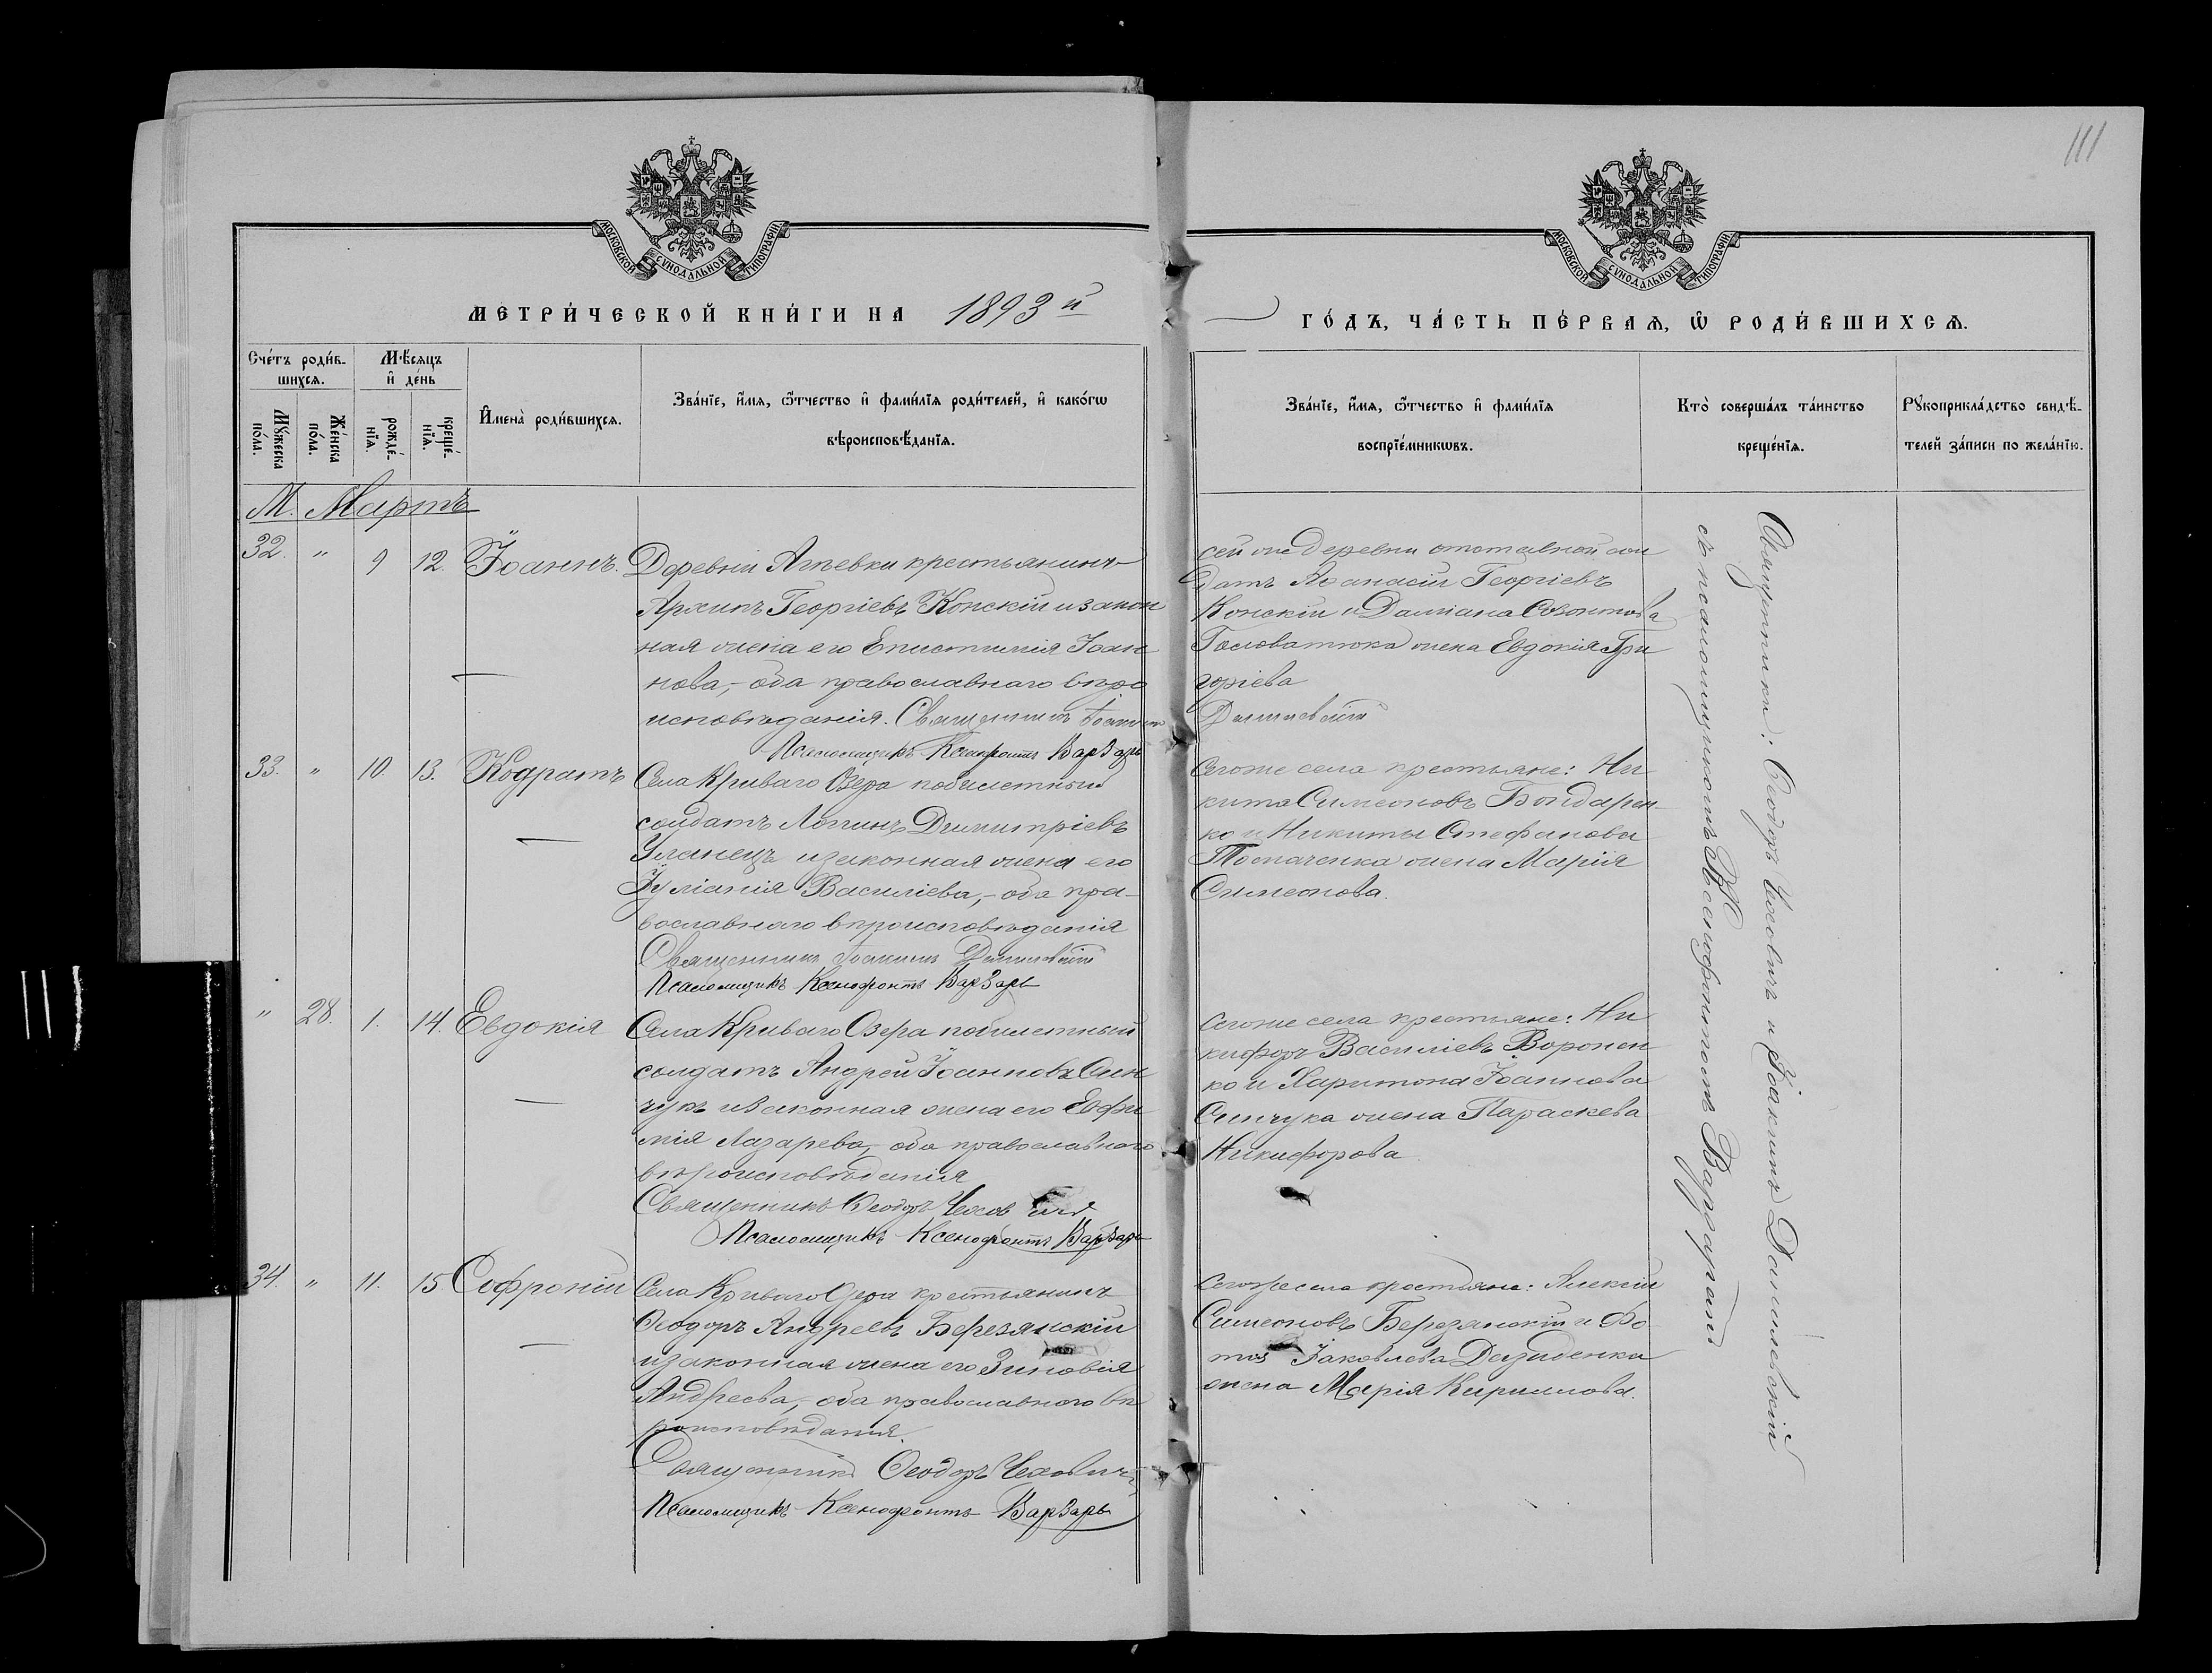 111
МОСКОВСКОЙ СУНОДАЛЬНОЙ ТИПОГРАФІИ
МОСКОВСКОЙ СУНОДАЛЬНОЙ ТИПОГРАФІИ
МЕТРИ́ЧЕСКОЙ КНИ́ГИ НА 1893 й
ГО́ДЪ, ЧА́СТЬ ПЕ́РВАѦ, Ѡ РОДИ́ВШИХСѦ.
Сче́тъ роди́в-
шихсѧ.
Мꙋ́жеска
пола.
Же́нска
по́ла.
Мѣ́сѧцъ
и҆ де́нь
рожде́-
нїѧ.
креще́-
нїѧ.
И҆мена̀ роди́вшихсѧ.
Зва́нїе, и҆́мѧ, ѻ҆́тчество и҆ фами́лїѧ роди́телей, и҆ како́гѡ
вѣроисповѣ́данїѧ.
Зва́нїе, и҆́мѧ, ѻ҆́тчество и҆ фами́лїѧ
воспрїе́мникѡвъ.
Кто̀ соверша́лъ та́инство
креще́нїѧ.
Рꙋкоприкла́дство свидѣ́-
телей за́писи по жела́нїю.
М. Мартъ
32. " 9 12. Іоаннъ.
Деревни крестьянинъ
Архипъ Георгіевъ Конскій и закон
ная жена его Епистимія Іоан
нова,- оба православнаго вѣро
исповѣданія. Священникъ Іоакимъ
Псаломщикъ Ксенофонтъ Варзарь
сей же деревни отставной сол
датъ Аѳанасій Георгіевъ
Конскій и Даміана Созонтова
Головатюка жена Евдокія Гри
горіева
Данилевскій
33. " 10. 13. Кодратъ
Села Криваго Озера побилетный
солдатъ Логинъ Димитріевъ
Уланецъ и законная жена его
Іуліанія Василіева,- оба пра-
вославнаго вѣроисповѣданія
Священникъ Іоакимъ Данилевскій
Псаломщикъ Ксенофонтъ Варзарь
Сегоже села крестьяне: Ни
кита Симеоновъ Бондарен
ко и Никиты Стефанова
жена Марія
Симеонова.
" 28. 1. 14. Евдокія
Села Криваго Озера побилетный
солдатъ Андрей Іоанновъ Син
чукъ и законная жена его Евфи
мія Лазарева,- оба православнаго
вѣроисповѣданія
Священникъ Ѳеодоръ
Псаломщикъ Ксенофонтъ Варзарь
Сегоже села крестьяне: Ни
кифоръ Василіевъ Воронен
ко и Харитона Іоаннова
Синчука жена Параскева
Никифорова
34. " 11. 15 Софроній
Села Криваго Озера крестьянинъ
Ѳеодоръ Андреевъ Березянскій
и законная жена его Зиновія
Андреева,- оба православнаго вѣ
роисповѣданія.
Священникъ Ѳеодоръ Чеховичъ
Псаломщикъ Ксенофонтъ Варзарь
Сегоже села крестьяне: Алексій
Симеоновъ Березянскій и Фо
Іаковлева Дазиденка
жена Марія Кириллова.
Священники: Ѳеодоръ Чеховичъ и Іоакимъ Данилевскій
съ псаломщикомъ Ксенофонтомъ Варзарай